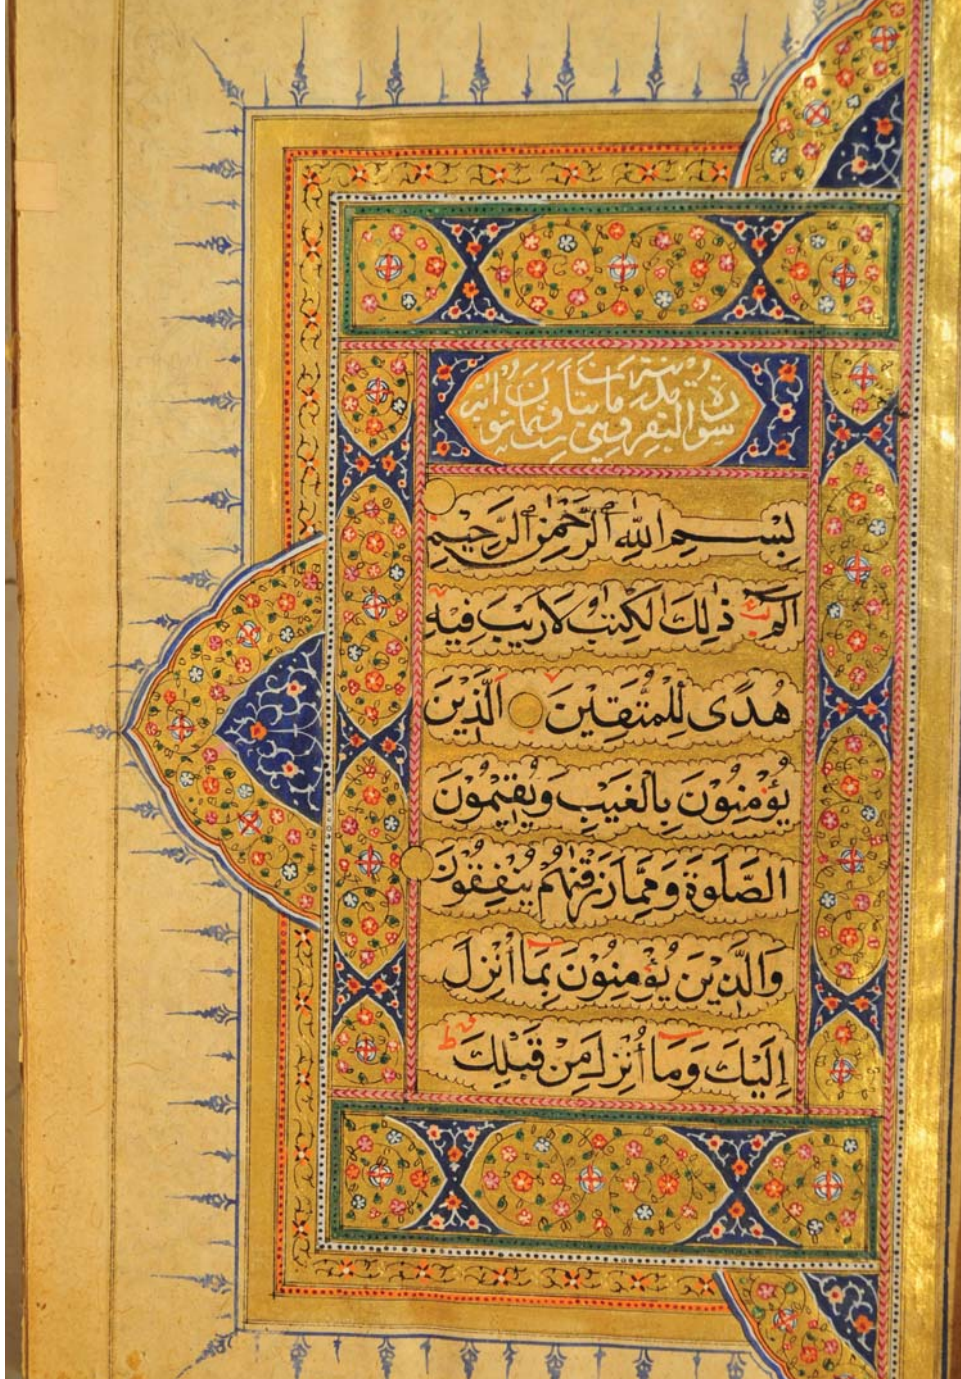 سورة البقر مدنية وهي مائتان وست وثمانون اية
بِسْمِ اللّٰهِ الرَّحْمٰنِ الرَّحِيْمِ
الٓمّٓ ذٰلِكَ الْكِتٰبُ لَا رَيْبَ فِيْهِ
هُدًى لِّلْمُتَّقِيْنَ الَّذِيْنَ
يُؤْمِنُوْنَ بِالْغَيْبِ وَيُقِيْمُوْنَ
الصَّلٰوةَ وَمِمَّا رَزَقْنٰهُمْ يُنْفِقُوْنَ
وَالَّذِيْنَ يُؤْمِنُوْنَ بِمَا اُنْزِلَ
اِلَيْكَ وَمَا اُنْزِلَ مِنْ قَبْلِكَ